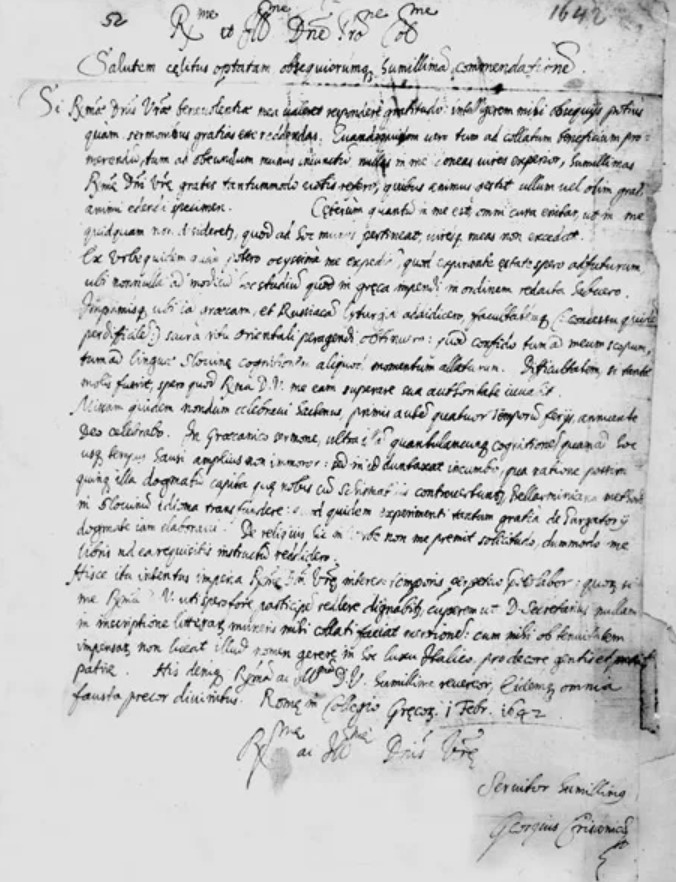 52 1642
R.me et Ill.me D.ne Pro.ne Col.me
Salutem cęlitus optatam, obsequiorumq, humillimā commendationē.
Si R.mæ D.nis V.ræ benevolentiæ mea valeret respondere gratitudo: intelligerem mihi obsequijs potius
quam sermonibus gratias esse reddendas. vero tum ad collatum beneficium pro=
merendū, tum ad obeundum munus iniunctū nullas in me idoneas vires experior, humillimas
R.mę D.ni V.rę grates tantummodo votis refero, quibus animus gestit ullum vel olim grati
animi edendi specimen. Cęterum quantū in me est, omni cura enitar, ut in me
quidquam non desideretʒ, quod ad hoc munus pertineat, viresq meas non excedat.
Ex Urbe quidem quam potero ocyssime me expediā, quod aspirante ęstate spero adfuturum,
ubi nonnulla ad modicū hoc studiū quod in gręca impendi in ordinem redacta habuero.
Imprimisq, ubi ia Græcam, et Russiacā lyturgiā addidicero, facultatemq (concessu quidē
perdifficilē) sacra ritu orientali peragendi obtinuero: quod confido tum ad meum scopum,
tum ad linguę Slovinę cognitionem aliquod momentum allaturum. Difficultatem, si tantę
molis fuerit, spero quod R.ma D. V. me eam superare sua authoritate iuvabit.
Missam quidem nondum celebravi hactenus, primis autē quatuor Temporū ferijs, annuente
Deo celebrabo. In Græcanico sermone, ultra illā quantulamcunq cognitionē quam ad hoc
usq tempus hausi amplius non immoror: sed in id duntaxat incumbo, qua ratione possim
illa dogmatū capita quę nobis cū Schismaticis controvertuntʒ, Bellarminiana methodo
in Slovinū idioma transfundere: quidem experimenti tantum gratia de Purgatorij
dogmate iam elaboravi. De reliquis hic in Urbe non me premit sollicitudo, dummodo me
libris ad ea requisitis instructū reddidero.
Hisce ita intentus imperia R.mę D.nis V.rę interea temporis perpetuo præstolabor: quoʒ si
me R.ma D. V. uti spero fore, participē reddere dignabitʒ, cuperem ut D. Secretarius nullam
in inscriptione litteraʒ muneris mihi collati faciat mentionē: cum mihi ob tenuitatem
impensaʒ non liceat illud nomen gerere in hoc luxu Italico, pro decore gentis et
patrię. His deniq R.mā ac Ill.mā D. V. humillime revereor, Eidemq omnia
fausta precor divinitus. Romę in Collegio Gręcoʒ. 1 Febr. 1642
R.mę ac Ill.mę D.nis V.rę
Servitor humillimus
Georgius Crisanius